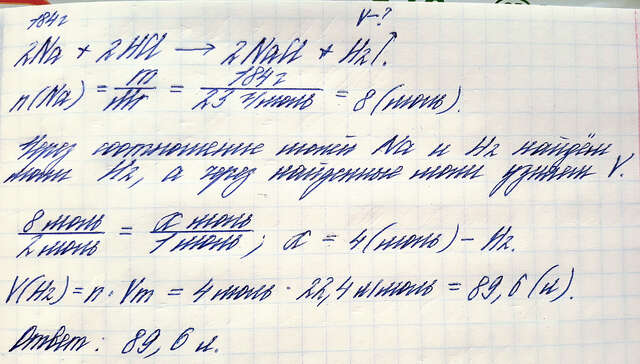 184г V-?
2Na + 2HCl → 2NaCl + H2↑.
n(Na) = m/Mr = 184г/23 г/моль = 8 (моль).
Через соотношение молей Na и H2 найдём
моли H2, а через найденные моли узнаем V.
8 моль/2 моль = x моль/1 моль; x = 4(моль) - H2.
V(H2) = n · Vm = 4 моль · 22,4 л/моль = 89,6 (л).
Ответ: 89,6 л.